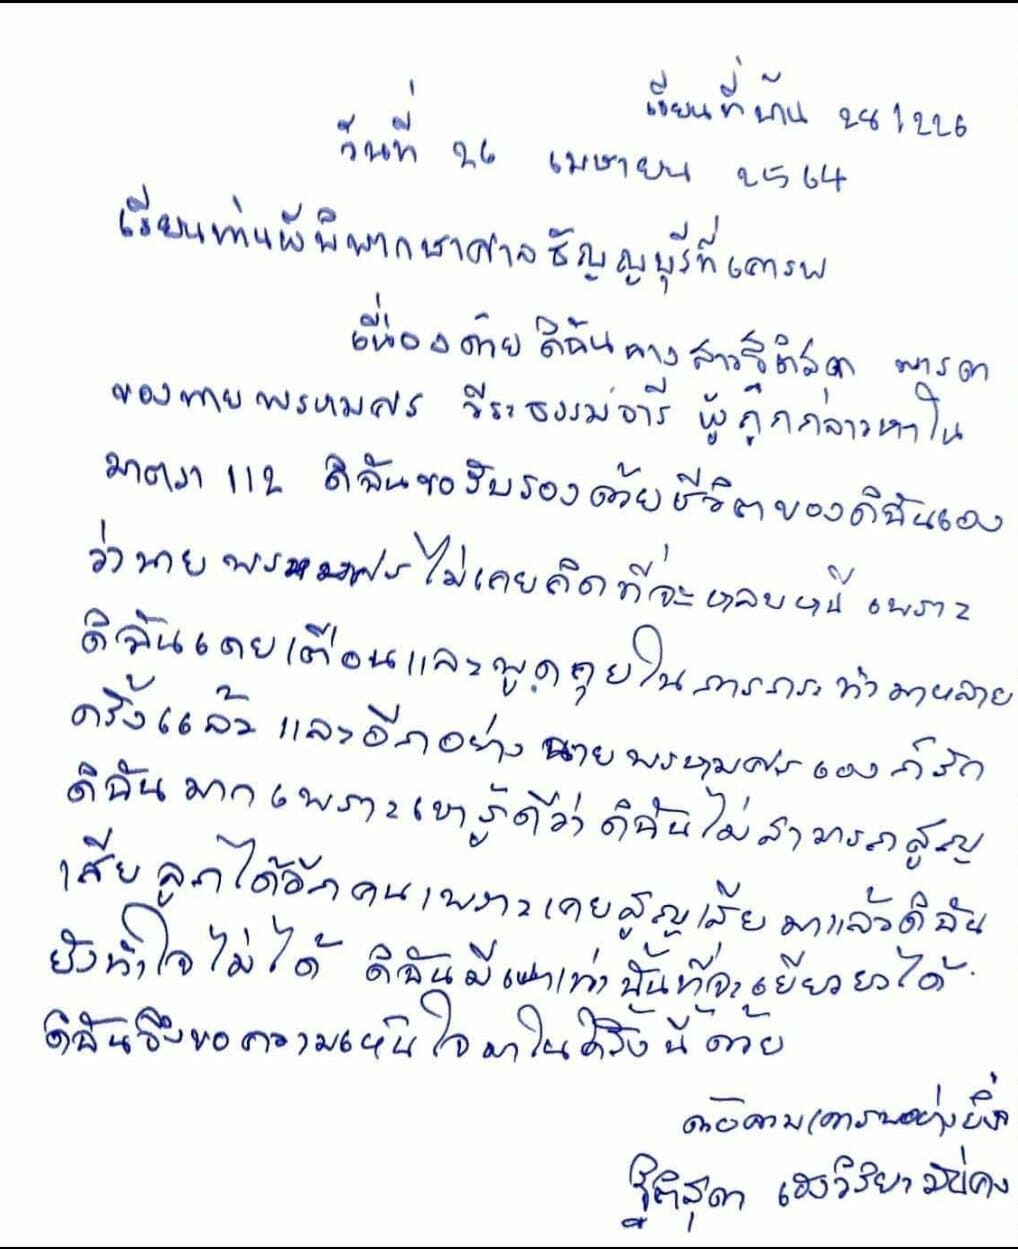 เขียนที่บ้าน 28/226
วันที่ 26 เมษายน 2564
เรียนท่านผู้พิพากษาศาลธัญญบุรีที่เคารพ
เนื่องด้วย ดิฉันนางสาวฐิติสุดา มารดา
ของนายพรหมศร วีระธรรมจารี ผู้ถูกกล่าวหาใน
มาตรา 112 ดิฉันขอรับรองด้วยชีวิตของดิฉันเอง
ว่านายพรหมศรไม่เคยคิดที่จะหลบหนี เพราะ
ดิฉันเคยเตือนและพูดคุยในการกระทำมาหลาย
ครั้งแล้ว และอีกอย่าง นายพรหมศรเองก็รัก
ดิฉันมากเพราะเขารู้ดีว่าดิฉันไม่สามารถสูญ
เสียลูกได้อีกคนเพราะเคยสูญเสียมาแล้วดิฉัน
ยังทำใจไม่ได้ ดิฉันมีเขาเท่านั้นที่จะเยียวยาได้
ดิฉันจึงขอความเห็นใจมาในครั้งนี้ด้วย
ด้วยความเคารพอย่างยิ่ง
ฐิติสุดา